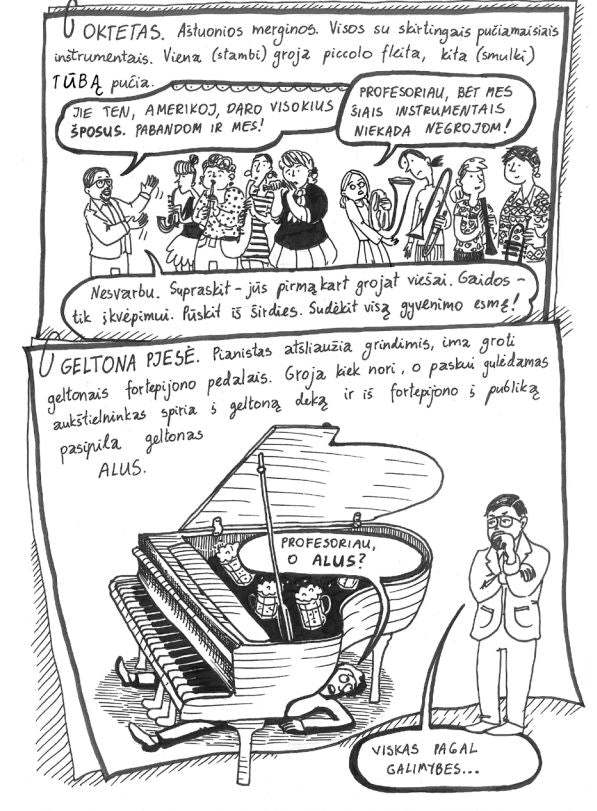 OKTETAS. Aštuonios merginos. Visos su skirtingais pučiamaisiais
instrumentais. Viena (stambi) groja piccolo fleita, kita (smulki)
TŪBĄ pučia.
JIE TEN, AMERIKOJ, DARO VISOKIUS
ŠPOSUS. PABANDOM IR MES!
PROFESORIAU, BET MES
ŠIAIS INSTRUMENTAIS
NIEKADA NEGROJOM!
Nesvarbu. Supraskit – jūs pirmąkart grojat viešai. Gaidos –
tik įkvėpimui. Pūskit iš širdies. Sudėkit visą gyvenimo esmę!
GELTONA PJESĖ. Pianistas atšliaužia grindimis, ima groti
geltonais fortepijono pedalais. Groja kiek nori, o paskui gulėdamas
aukštielninkas spiria į geltoną deką ir iš fortepijono į publiką
pasipila geltonas
ALUS.
PROFESORIAU,
O ALUS?
VISKAS PAGAL
GALIMYBES...